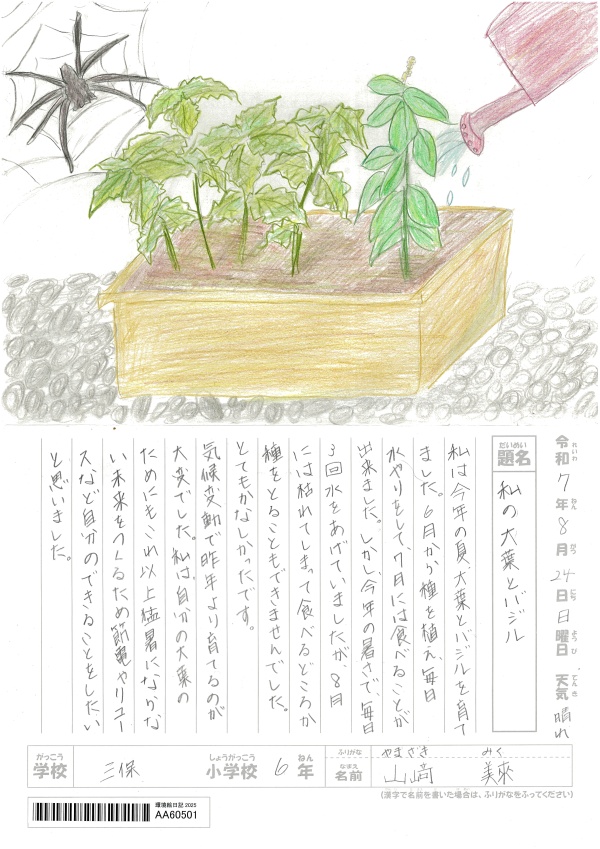 令和7年8月24日日曜日 天気 晴れ
れいわ ねん がつ にち ようび てんき
だいめい
題名 私の大葉とバジル
私は今年の夏、大葉とバジルを育て
ました。6月から種を植え、毎日
水やりをして、7月には食べることが
出来ました。しかし、今年の暑さで、毎日
3回水をあげていましたが、8月
には枯れてしまって食べるどころか
種をとることもできませんでした。
とてもかなしかったです。
気候変動で昨年より育てるのが
大変でした。私は、自分の大葉の
ためにもこれ以上猛暑にならな
い未来をつくるため節電やリユー
スなど自分のできることをしたい
と思いました。
がっこう しょうがっこう ねん ふりがな やまざき みく
学校 三保 小学校 6年 なまえ 名前 山﨑 美來
(漢字で名前を書いた場合は、ふりがなをふってください)
環境絵日記 2025
AA60501